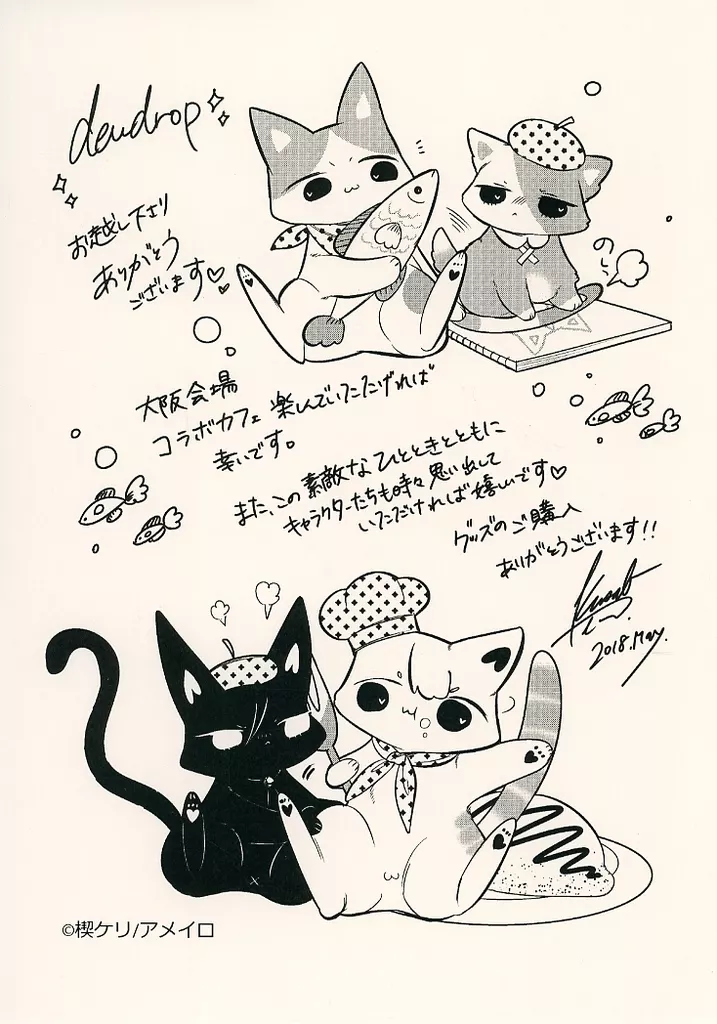 dewdrop
お越し下さり
ありがとう
ございます♡
のしっ
大阪会場
コラボカフェ 楽しんでいただければ
幸いです。
また、この素敵なひとときとともに
キャラクターたちも時々思い出して
いただければ嬉しいです♡
グッズのご購入
ありがとうございます!!
2018.May.
©楔ケリ/アメイロ